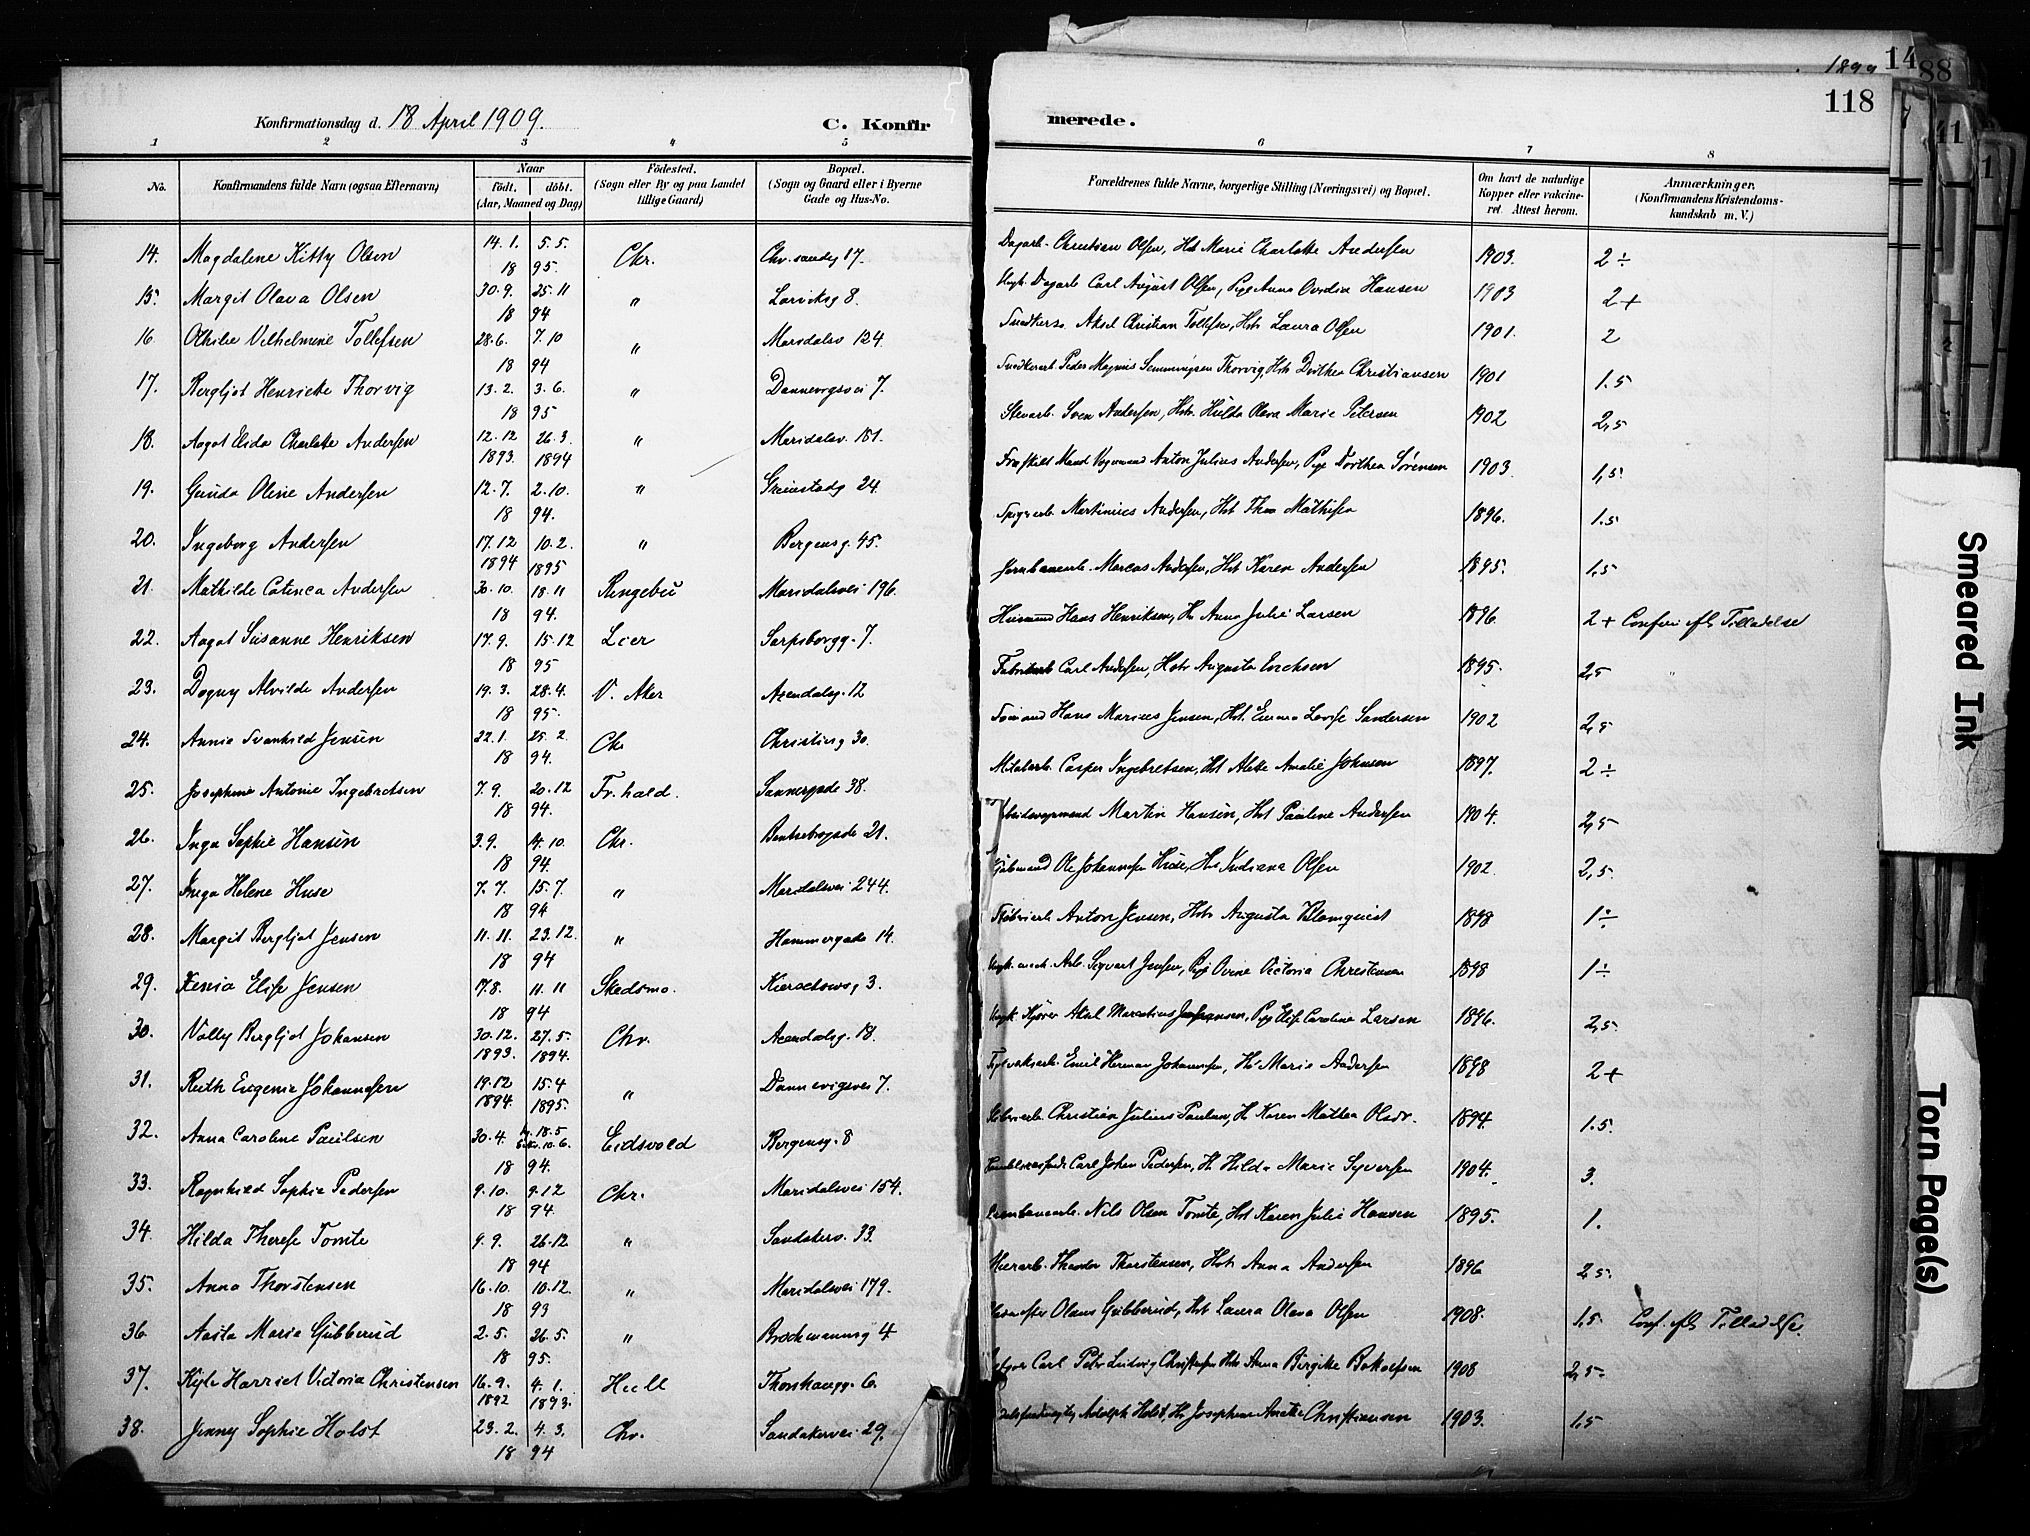 1899 14
88
118
Konfirmationsdag d. 18 April 1909. C. Konfirmerede.
1 2 3 4 5 6 7 8
No. Konfirmandens fulde Navn (ogsaa Efternavn) Naar født. døbt. (Aar, Maaned og Dag) Fødested. (Sogn eller By og paa Landet tillige Gaard) Bopæl. (Sogn og Gaard eller i Byerne Gade og Hus-No. Forældrenes fulde Navne, borgerlige Stilling (Næringsvei) og Bopæl. Om havt de naturlige Kopper eller vakcineret. Attest herom. Anmærkninger. (Konfirmandens Kristendomskundskab m. V.)
14. Magdalene Kitty Olsen 14.1. 5.5. 18 95. Chr. Chr.sandsg 17. Dagarb. Christian Olsen, Hst Marie Charlotte Andersen 1903. 2÷
15. Margit Olava Olsen 30.9. 25.11 18 94 " Larviksg 8. Ungk. Dagarb Carl August Olsen, Pige Anna Ovidia Hansen 1903 2+
16. Othilie Vilhelmine Tollefsen 28.6. 7.10 18 94 " Marsdalsv 124. Aksel Christian Tollefsen, Hst Laura Olsen 1901. 2
17. Bergljot Henriette Thorvig 13.2. 3.6. 18 95 " Dannevigsvei 7. Peder Magnus Semmingsen Thorvig, Hst Dorthea Christiansen 1901 1.5
18. Aagot Elida Charlotte Andersen 12.12 26.3. 1893. 1894 " Maridalsv. 151. Stenarb. Sven Andersen, Hst. Hulda Olava Marie Petersen 1902 2,5
19. Gunda Oline Andersen 12.7. 2.10. 18 94. " Grimstadg 24. Fraskilt Mand Vognmand Anton Julius Andersen, Pige Dorthea Sørensen 1903. 1,5
20. Ingeborg Andersen 17.12 10.2. 1894 1895 " Bergensg. 45. Martinius Andersen, Hst Thea Mathisen 1896. 1.5
21. Mathilde Catinca Andersen 30.10. 18.11 18 94. Ringebu Maridalsvei 196. Jernbanearb. Marcus Andersen, Hst Karen Andersen 1895. 1,5
22. Aagot Susanne Henriksen 17.9. 15.12 18 95 Lier Sarpsborgg. 7. Husmand Hans Henriksen, H. Anna Julie Larsen 1896. 2+ Confir. efter Tilladelse
23. Dagny Alvilde Andersen 19.3. 28.4. 18 95. V. Aker Arendalsg. 12 Fabrikarb Carl Andersen, Hst Augusta Erichsen 1895. 2,5
24. Annie Svanhild Jensen 22.1. 25.2. 18 94. Chr Christiesg 30. Hans Marius Jensen, Hst. Emma Lovise Sandersen 1902 2,5
25. Josephine Antonie Ingebretsen 7.9. 20.12 18 94. Fr.hald. Sannergade 38. Metalarb. Casper Ingebretsen, Hst Alette Amalie Johnsen 1897. 2÷
26. Inga Sophie Hansen 3.9. 14.10. 18 94. Chr. Bentsebrogade 21. Martin Hansen, Hst Pauline Andersen 1904. 2,5
27. Inga Helene Huse 7.7. 15.7. 18 94 " Maridalsvei 244. Ole Johannesen Huse, Hst Indiana Olsen 1902. 2,5.
28. Margit Bergljot Jensen 11.11. 23.12. 18 94 " Hammergade 14. Anton Jensen, Hst Augusta Blomquist 1898 1÷
29. Xenia Elise Jensen 17.8. 11.11 18 94 Skedsmo. Kierschowsg 3. Ungk. mek. Arb. Sigvart Jensen, Pige Ovine Victoria Christensen 1898 1÷
30. Vally Bergljot Johansen 30.12. 27.5. 1893. 1894. Chr. Arendalsg. 18. Ungk. Kjører Aksel Marentius Johansen, Pige Elise Caroline Larsen 1896. 2,5.
31. Ruth Eugenie Johannesen 19.12 15.4 1894. 1895. " Dannevigsvei 7. Emil Herman Johannesen, H. Marie Andersen 1898 2+
32. Anna Caroline Paulsen 30.4. 18.5 10.6. 18 94. Eidsvold Bergensg. 8 Christian Julius Paulsen, H. Karen Mathea Olsdr. 1894 1.5.
33. Ragnhild Sophie Pedersen 9.10. 9.12 18 94. Chr. Maridalsvei 154. Carl Johan Pedersen, H. Hilda Marie Syversen 1904. 3.
34. Hilda Therese Tomte 9.9. 26.12 18 94 " Sandakerv. 33. Jernbanearb. Nils Olsen Tomte, Hst Karen Julie Hansen 1895. 1.
35. Anna Thorstensen 16.10. 10.12. 18 93 " Maridalsvei 179. Murarb. Theodor Thorstensen, Hst Anna Andersen 1896 2,5.
36. Aasta Marie Gubberud 2.5. 26.5. 18 95. " Brochmannsg 4 Olaus Gubberud, Hst Laura Olava Olsen 1908. 1.5 Conf. eft. Tilladelse.
37. Harriet Victoria Christensen 16.9. 4.1. 1892 1893. Hull Thorshaugg. 6. Carl Peter Ludvig Christensen Hst Anna Birgitte 1908 2,5-
38. Jenny Sophie Holst 23.2. 4.3. 18 94 Chr. Sandakervei 29. Adolph Holst, H. Josephine Anette Christiansen 1903. 1.5
Smeared Ink
Torn Page(s)